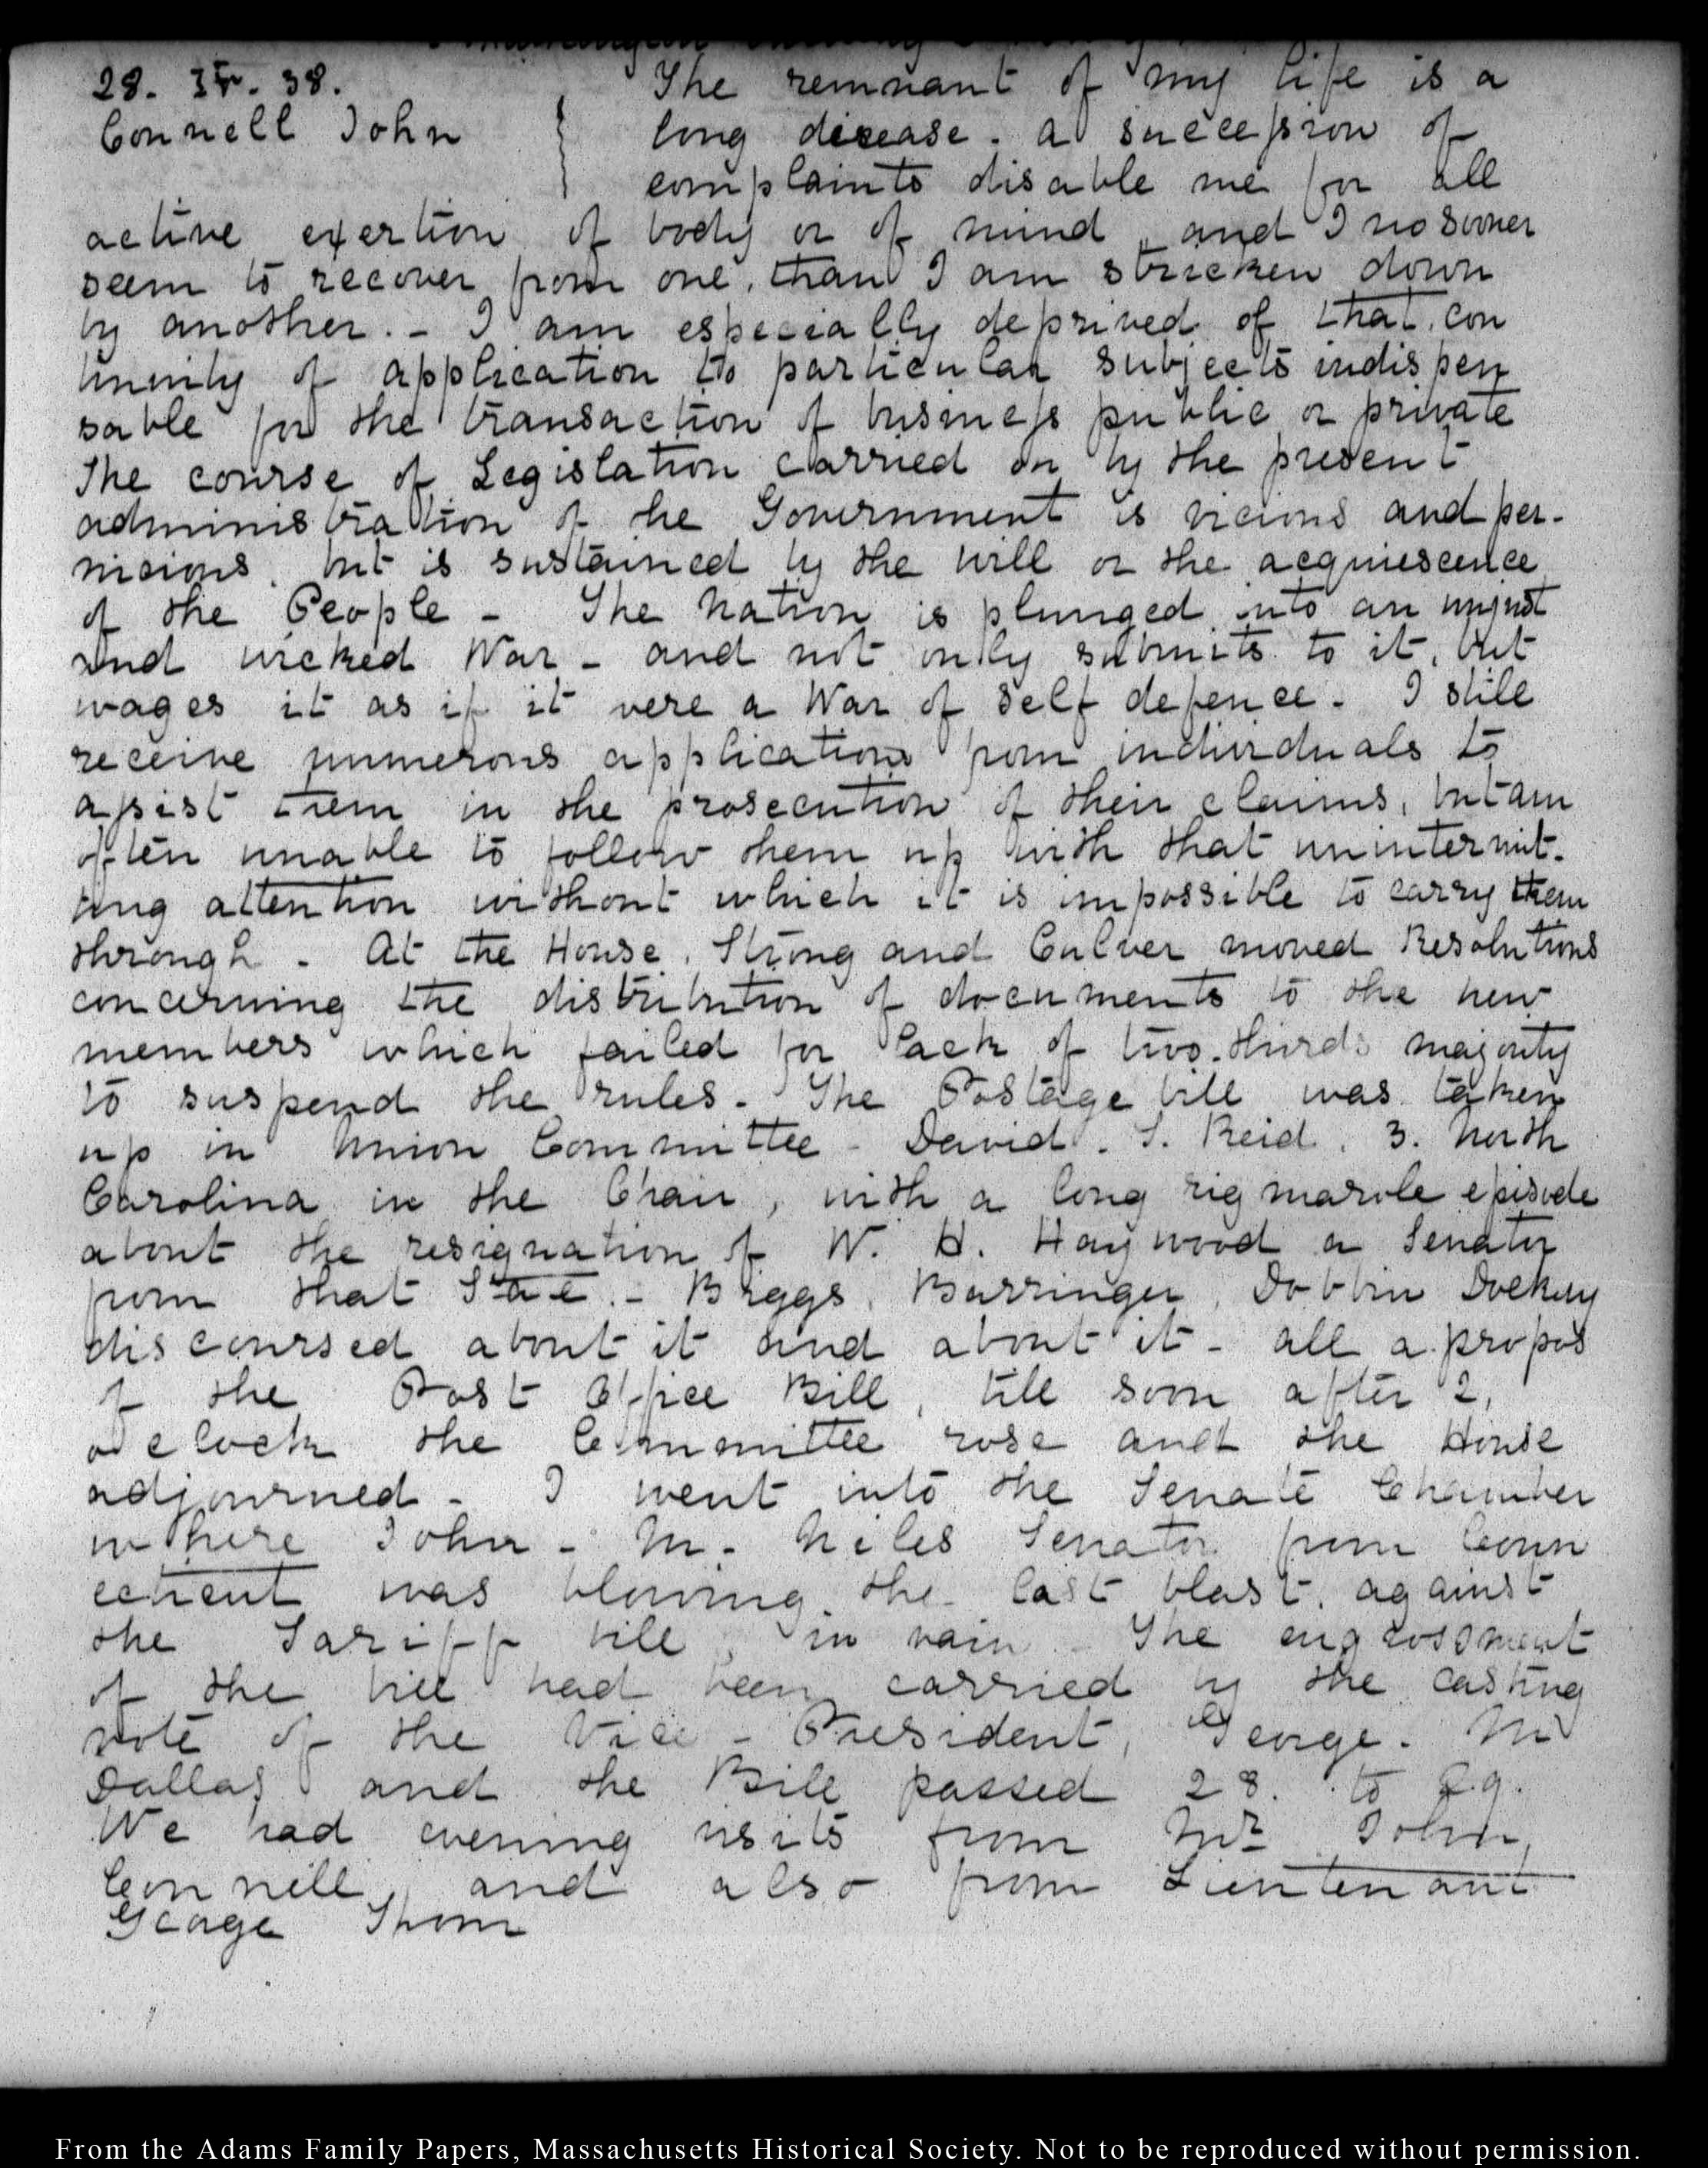 28. IV. 38.
Connell John
The remnant of my life is a
long disease. a succession of
complaints disable me for all
active exertion of body or of mind, and I no sooner
seem to recover from one, than I am stricken down
by another. - I am especially deprived of that, con
tinuity of application to particular subjects indispen
sable for the transaction of business public or private
The course of Legislation carried on by the present
administration of the Government is vicious and per-
nicious, but is sustained by the will or the acquiescence
of the People - The Nation is plunged into an unjust
and wicked War - and not only submits to it, but
wages it as if it were a War of self defence. I still
receive numerous applications from individuals to
assist them in the prosecution of their claims, but am
often unable to follow them up with that unintermit-
ting attention without which it is impossible to carry them
through. At the House, Strong and Culver moved Resolutions
concerning the distribution of documents to the new
members which failed for lack of two-thirds majority
to suspend the rules. The Postage bill was taken
up in Union Committee - David. S. Reid. 3. North
Carolina in the Chair, with a long rigmarole episode
about the resignation of W. H. Haywood a Senator
from that State. - Biggs, Barringer, Dobbin Dockery
discoursed about it and about it - all a propos
of the Post Office Bill, till soon after 2,
o'clock the Committee rose and the House
adjourned - I went into the Senate Chamber
where John - M. Niles Senator from Conn
ecticut was blowing the last blast, against
the Tariff bill, in vain - The engrossment
of the bill had been carried by the casting
vote of the Vice-President, George. M
Dallas and the Bill passed 28. to 29.
We had evening visits from Mr John,
Connell, and also from Lieutenant
George Thom
From the Adams Family Papers, Massachusetts Historical Society. Not to be reproduced without permission.